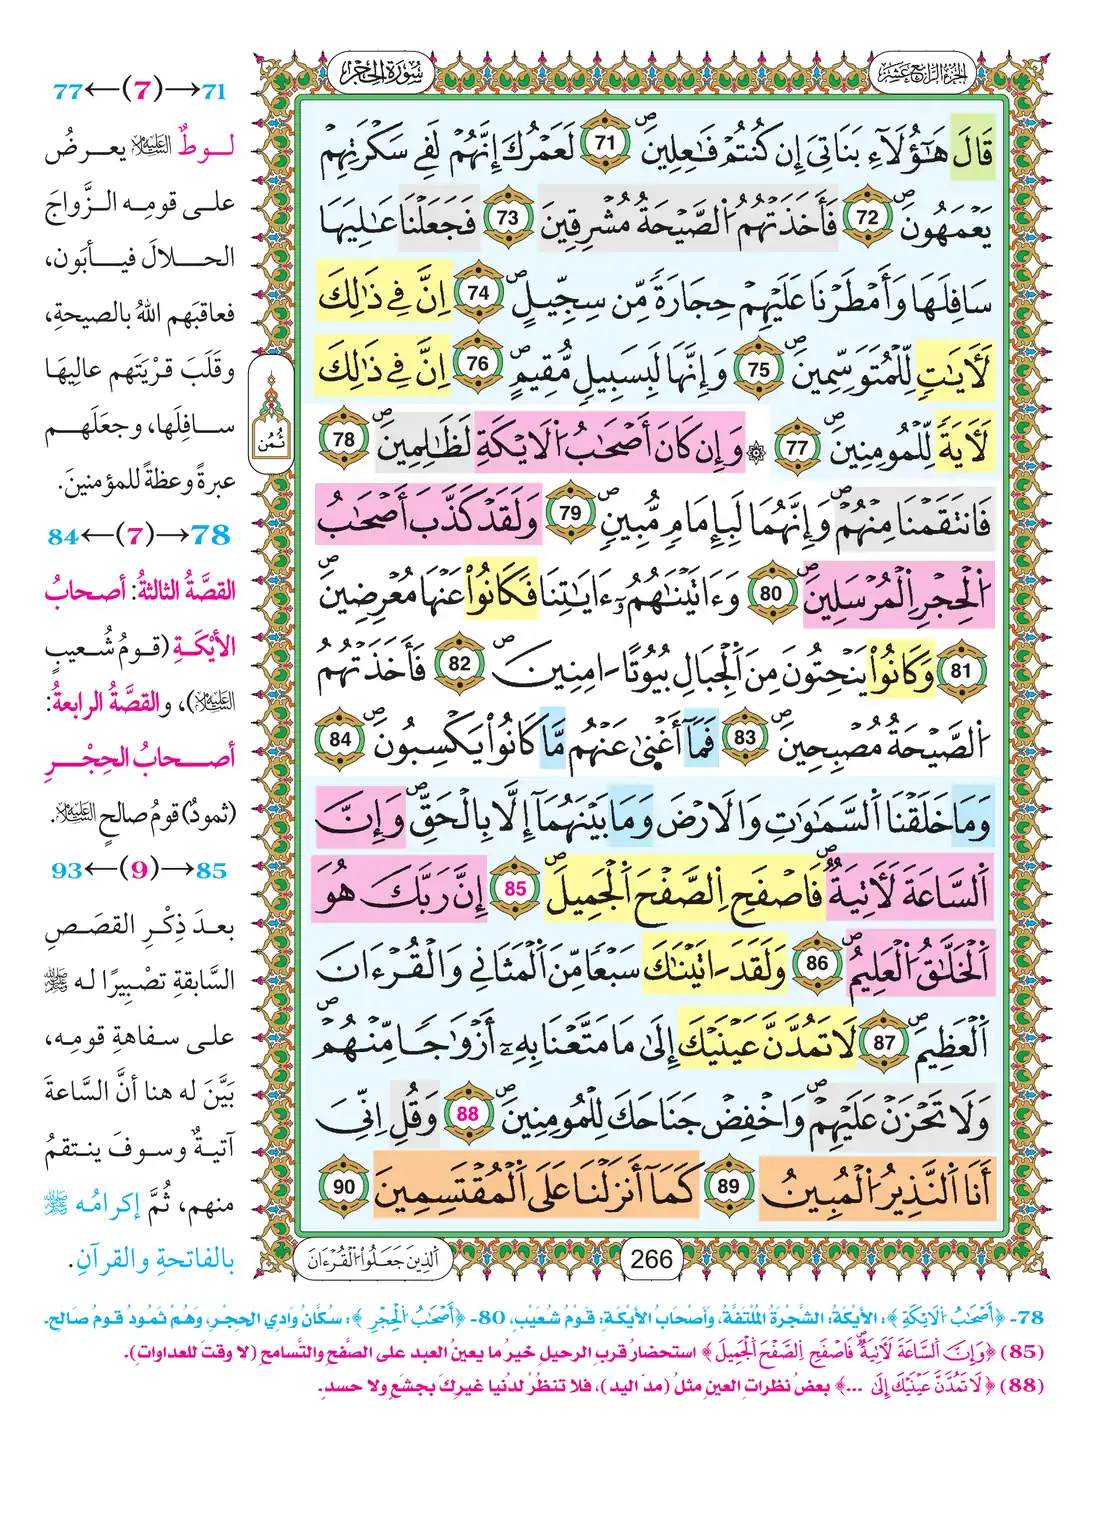 الجزء الرابع عشر
سورة الحجر
قَالَ هَٰٓؤُلَآءِ بَنَاتِيَ إِن كُنتُمْ فَٰعِلِينَ 71 لَعَمْرُكَ إِنَّهُمْ لَفِے سَكْرَتِهِمْ
يَعْمَهُونَ 72 فَأَخَذَتْهُمُ اُ۬لصَّيْحَةُ مُشْرِقِينَ 73 فَجَعَلْنَا عَٰلِيَهَا
سَافِلَهَا وَأَمْطَرْنَا عَلَيْهِمْ حِجَارَةً مِّن سِجِّيلٍ 74 اِنَّ فِے ذَٰلِكَ
لَأٓيَٰتٍ لِّلْمُتَوَسِّمِينَ 75 وَإِنَّهَا لَبِسَبِيلٍ مُّقِيمٍ 76 اِنَّ فِے ذَٰلِكَ
لَأٓيَةً لِّلْمُومِنِينَ 77 ۞ وَإِن كَانَ أَصْحَٰبُ اُ۬لَايْكَةِ لَظَٰلِمِينَ 78
فَانتَقَمْنَا مِنْهُمْ وَإِنَّهُمَا لَبِإِمَامٍ مُّبِينٍ 79 وَلَقَدْ كَذَّبَ أَصْحَٰبُ
اُ۬لْحِجْرِ اِ۬لْمُرْسَلِينَ 80 وَءَاتَيْنَٰهُمُۥٓ ءَايَٰتِنَا فَكَانُواْ عَنْهَا مُعْرِضِينَ
81 وَكَانُواْ يَنْحِتُونَ مِنَ اَ۬لْجِبَالِ بُيُوتاً اٰمِنِينَ 82 فَأَخَذَتْهُمُ
اُ۬لصَّيْحَةُ مُصْبِحِينَ 83 فَمَآ أَغْنَىٰ عَنْهُم مَّا كَانُواْ يَكْسِبُونَ 84
وَمَا خَلَقْنَا اَ۬لسَّمَٰوَٰتِ وَالَارْضَ وَمَا بَيْنَهُمَآ إِلَّا بِالْحَقِّ وَإِنَّ
اَ۬لسَّاعَةَ لَأٓتِيَةٌ فَاصْفَحِ اِ۬لصَّفْحَ اَ۬لْجَمِيلَ 85 إِنَّ رَبَّكَ هُوَ
اَ۬لْخَلَّٰقُ اُ۬لْعَلِيمُ 86 وَلَقَدَ اٰتَيْنَٰكَ سَبْعاً مِّنَ اَ۬لْمَثَانِے وَالْقُرْءَانَ
اَ۬لْعَظِيمَ 87 لَا تَمُدَّنَّ عَيْنَيْكَ إِلَىٰ مَا مَتَّعْنَا بِهِۦٓ أَزْوَٰجاً مِّنْهُمْ
وَلَا تَحْزَنْ عَلَيْهِمْ وَاخْفِضْ جَنَاحَكَ لِلْمُومِنِينَ 88 وَقُلِ اِنِّيَ
أَنَا اَ۬لنَّذِيرُ اُ۬لْمُبِينُ 89 كَمَآ أَنزَلْنَا عَلَى اَ۬لْمُقْتَسِمِينَ 90
266
اَ۬لذِينَ جَعَلُواْ اُ۬لْقُرْءَانَ
ثُمُن
71→(7)←77
لــوطٌ عليه السلام يعــرضُ
علــى قومِــه الــزَّواجَ
الحــلالَ فيــأبَون،
فعاقبَهم اللهُ بالصيحةِ،
وقَلَبَ قريَتَهم عالِيهَا
ســافِلَها، وجعَلَهــم
عبرةً وعظةً للمؤمنينَ.
78→(7)←84
القصَّةُ الثالثةُ: أصحابُ
الأَيْكَــةِ (قــومُ شُــعيبٍ
عليه السلام)، والقصَّةُ الرابعةُ:
أصــحابُ الحِجْــرِ
(ثمودُ) قومُ صالحٍ عليه السلام.
85→(9)←93
بعــدَ ذِكْــرِ القصَــصِ
السَّابقةِ تصْبِيرًا لـه ﷺ
علــى ســفاهةِ قومِــه،
بَيَّنَ له هنا أنَّ السَّاعةَ
آتيــةٌ وســوفَ ينــتقمُ
منهم، ثُمَّ إكرامُه ﷺ
بالفاتحةِ والقرآنِ.
78- ﴿أَصْحَٰبُ اُ۬لَايْكَةِ﴾: الأيْكَةُ: الشَّجْرَةُ المُلْتَفَّةُ، وَأصْحَابُ الأيْكَةِ: قَوْمُ شُعَيْبٍ، 80- ﴿أَصْحَٰبُ اُ۬لْحِجْرِ﴾: سُكَّانُ وَادِي الحِجْرِ، وَهُمْ ثَمُودُ قَومُ صَالحٍ.
(85) ﴿وَإِنَّ اَ۬لسَّاعَةَ لَأٓتِيَةٌ فَاصْفَحِ اِ۬لصَّفْحَ اَ۬لْجَمِيلَ﴾ استحضارُ قربِ الرحيلِ خيرُ ما يعينُ العبد على الصفحِ والتَّسامحِ (لا وقتَ للعداواتِ).
(88) ﴿لَا تَمُدَّنَّ عَيْنَيْكَ إِلَىٰ ...﴾ بعضُ نظراتِ العينِ مثلُ (مدَ اليد)، فلا تنظُرْ لدُنيا غيرِكَ بجشَعٍ ولا حسدٍ.